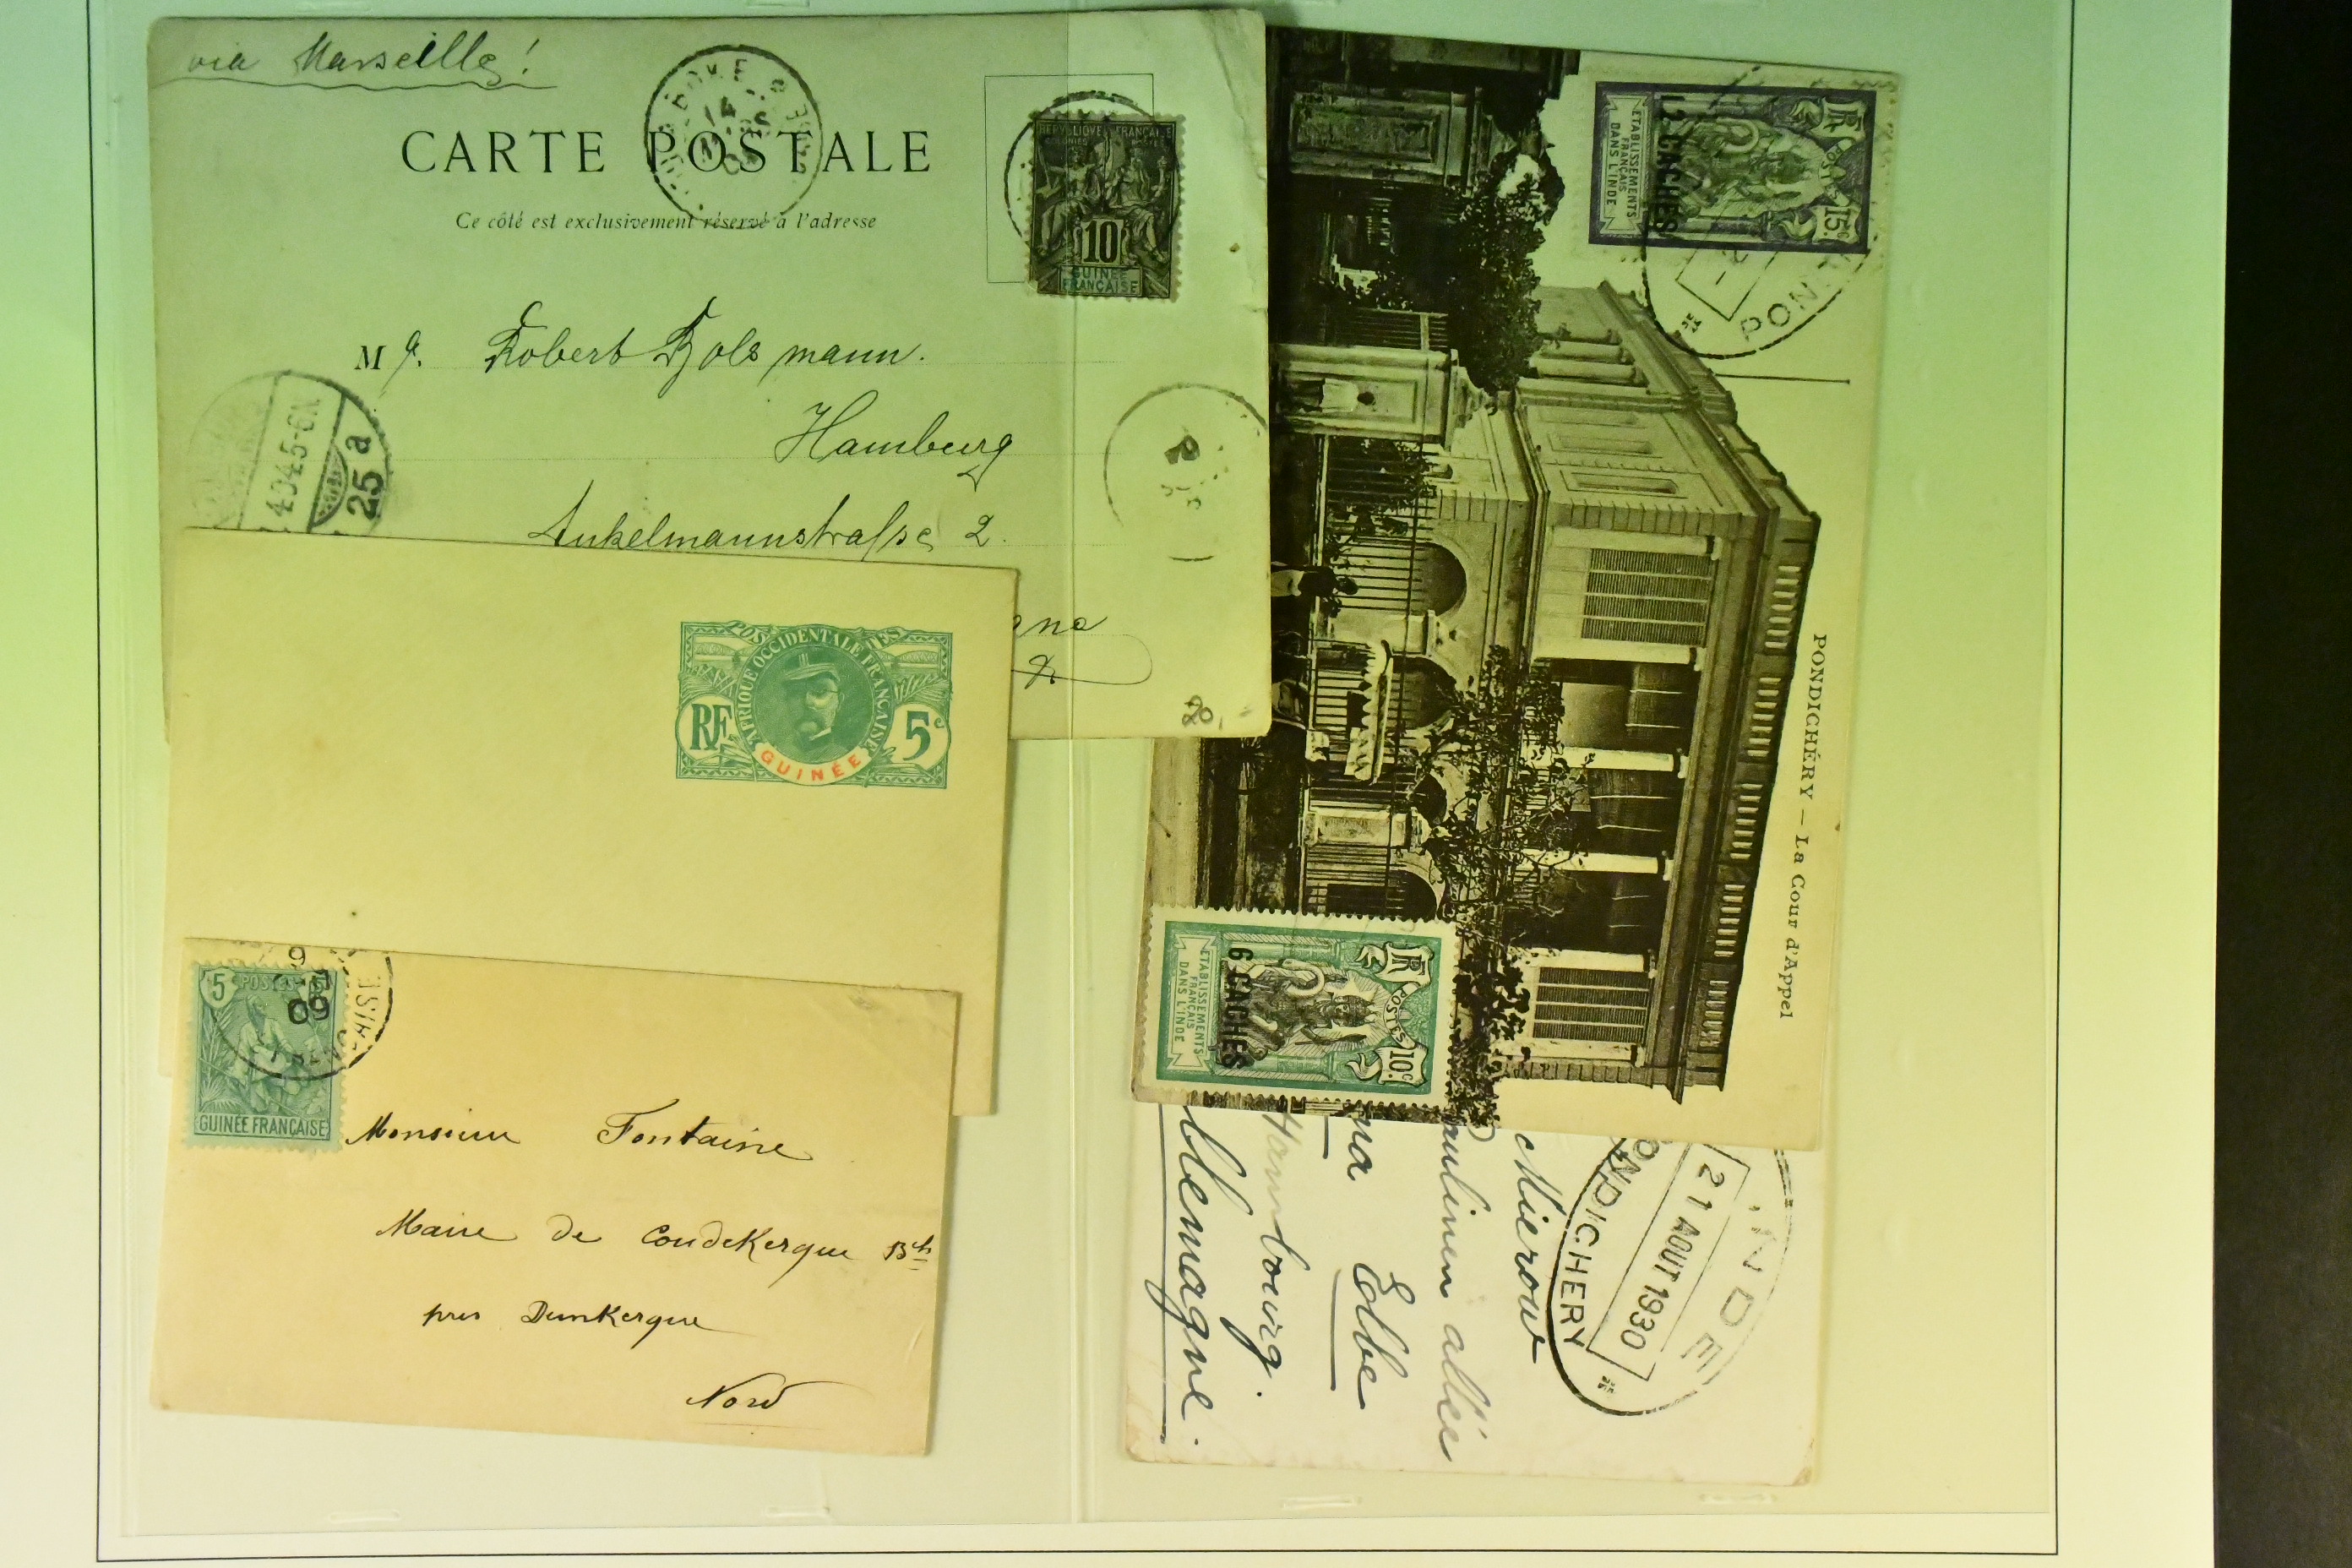 via Marseille!
CARTE POSTALE
Ce côté est exclusivement réservé à l'adresse
RÉPUBLIQUE FRANÇAISE
COLONIES
10
GUINÉE
FRANÇAISE
M r. Robert Bolsmann.
Hamburg
25 a
Ankelmannstrasse 2.
20,
POSTES
AFRIQUE OCCIDENTALE FRANÇAISE
RF
5c
GUINÉE
5 POSTES
09
GUINÉE FRANÇAISE
Monsieur Fontaine
Maire de Coudekerque Bch
près Dunkerque
Nord
RF
POSTES
15c
12 CACHES
ÉTABLISSEMENTS
FRANÇAIS
DANS L'INDE
PON
PONDICHÉRY — La Cour d'Appel
RF
POSTES
10c
6 CACHES
ÉTABLISSEMENTS
FRANÇAIS
DANS L'INDE
INDE
21 AOUT 1930
PONDICHERY
Mierow
aulinen allée
na Elbe
Hambourg.
llemagne.